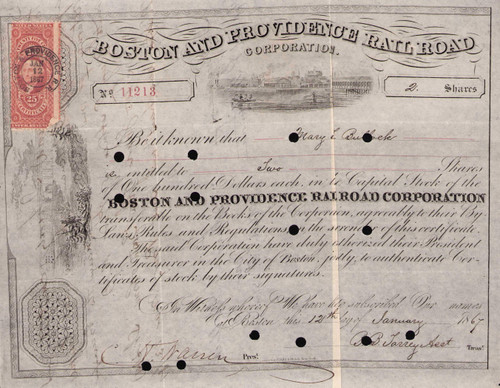 BOSTON AND PROVIDENCE RAIL ROAD
CORPORATION.
PROVIDENCE R.R.
JAN
12
1867
25
No 11213
2. Shares
Be it known that Mary E Bullock
is entitled to Two Shares
of One hundred Dollars each, in te Capital Stock of the
BOSTON AND PROVIDENCE RAILROAD CORPORATION
transferable on the Books of the Corporation, agreeably to their By
Laws, Rules and Regulations, on the surrender of this certificate.
The said Corporation have duly authorized their President
and Treasurer in the City of Boston, jointly, to authenticate Cer-
tificates of stock by their signatures.
In Witness whereof We have subscribed Our names
at Boston this 12th day of January 1867
Warren Pres. B. B. Torrey Asst Treas.